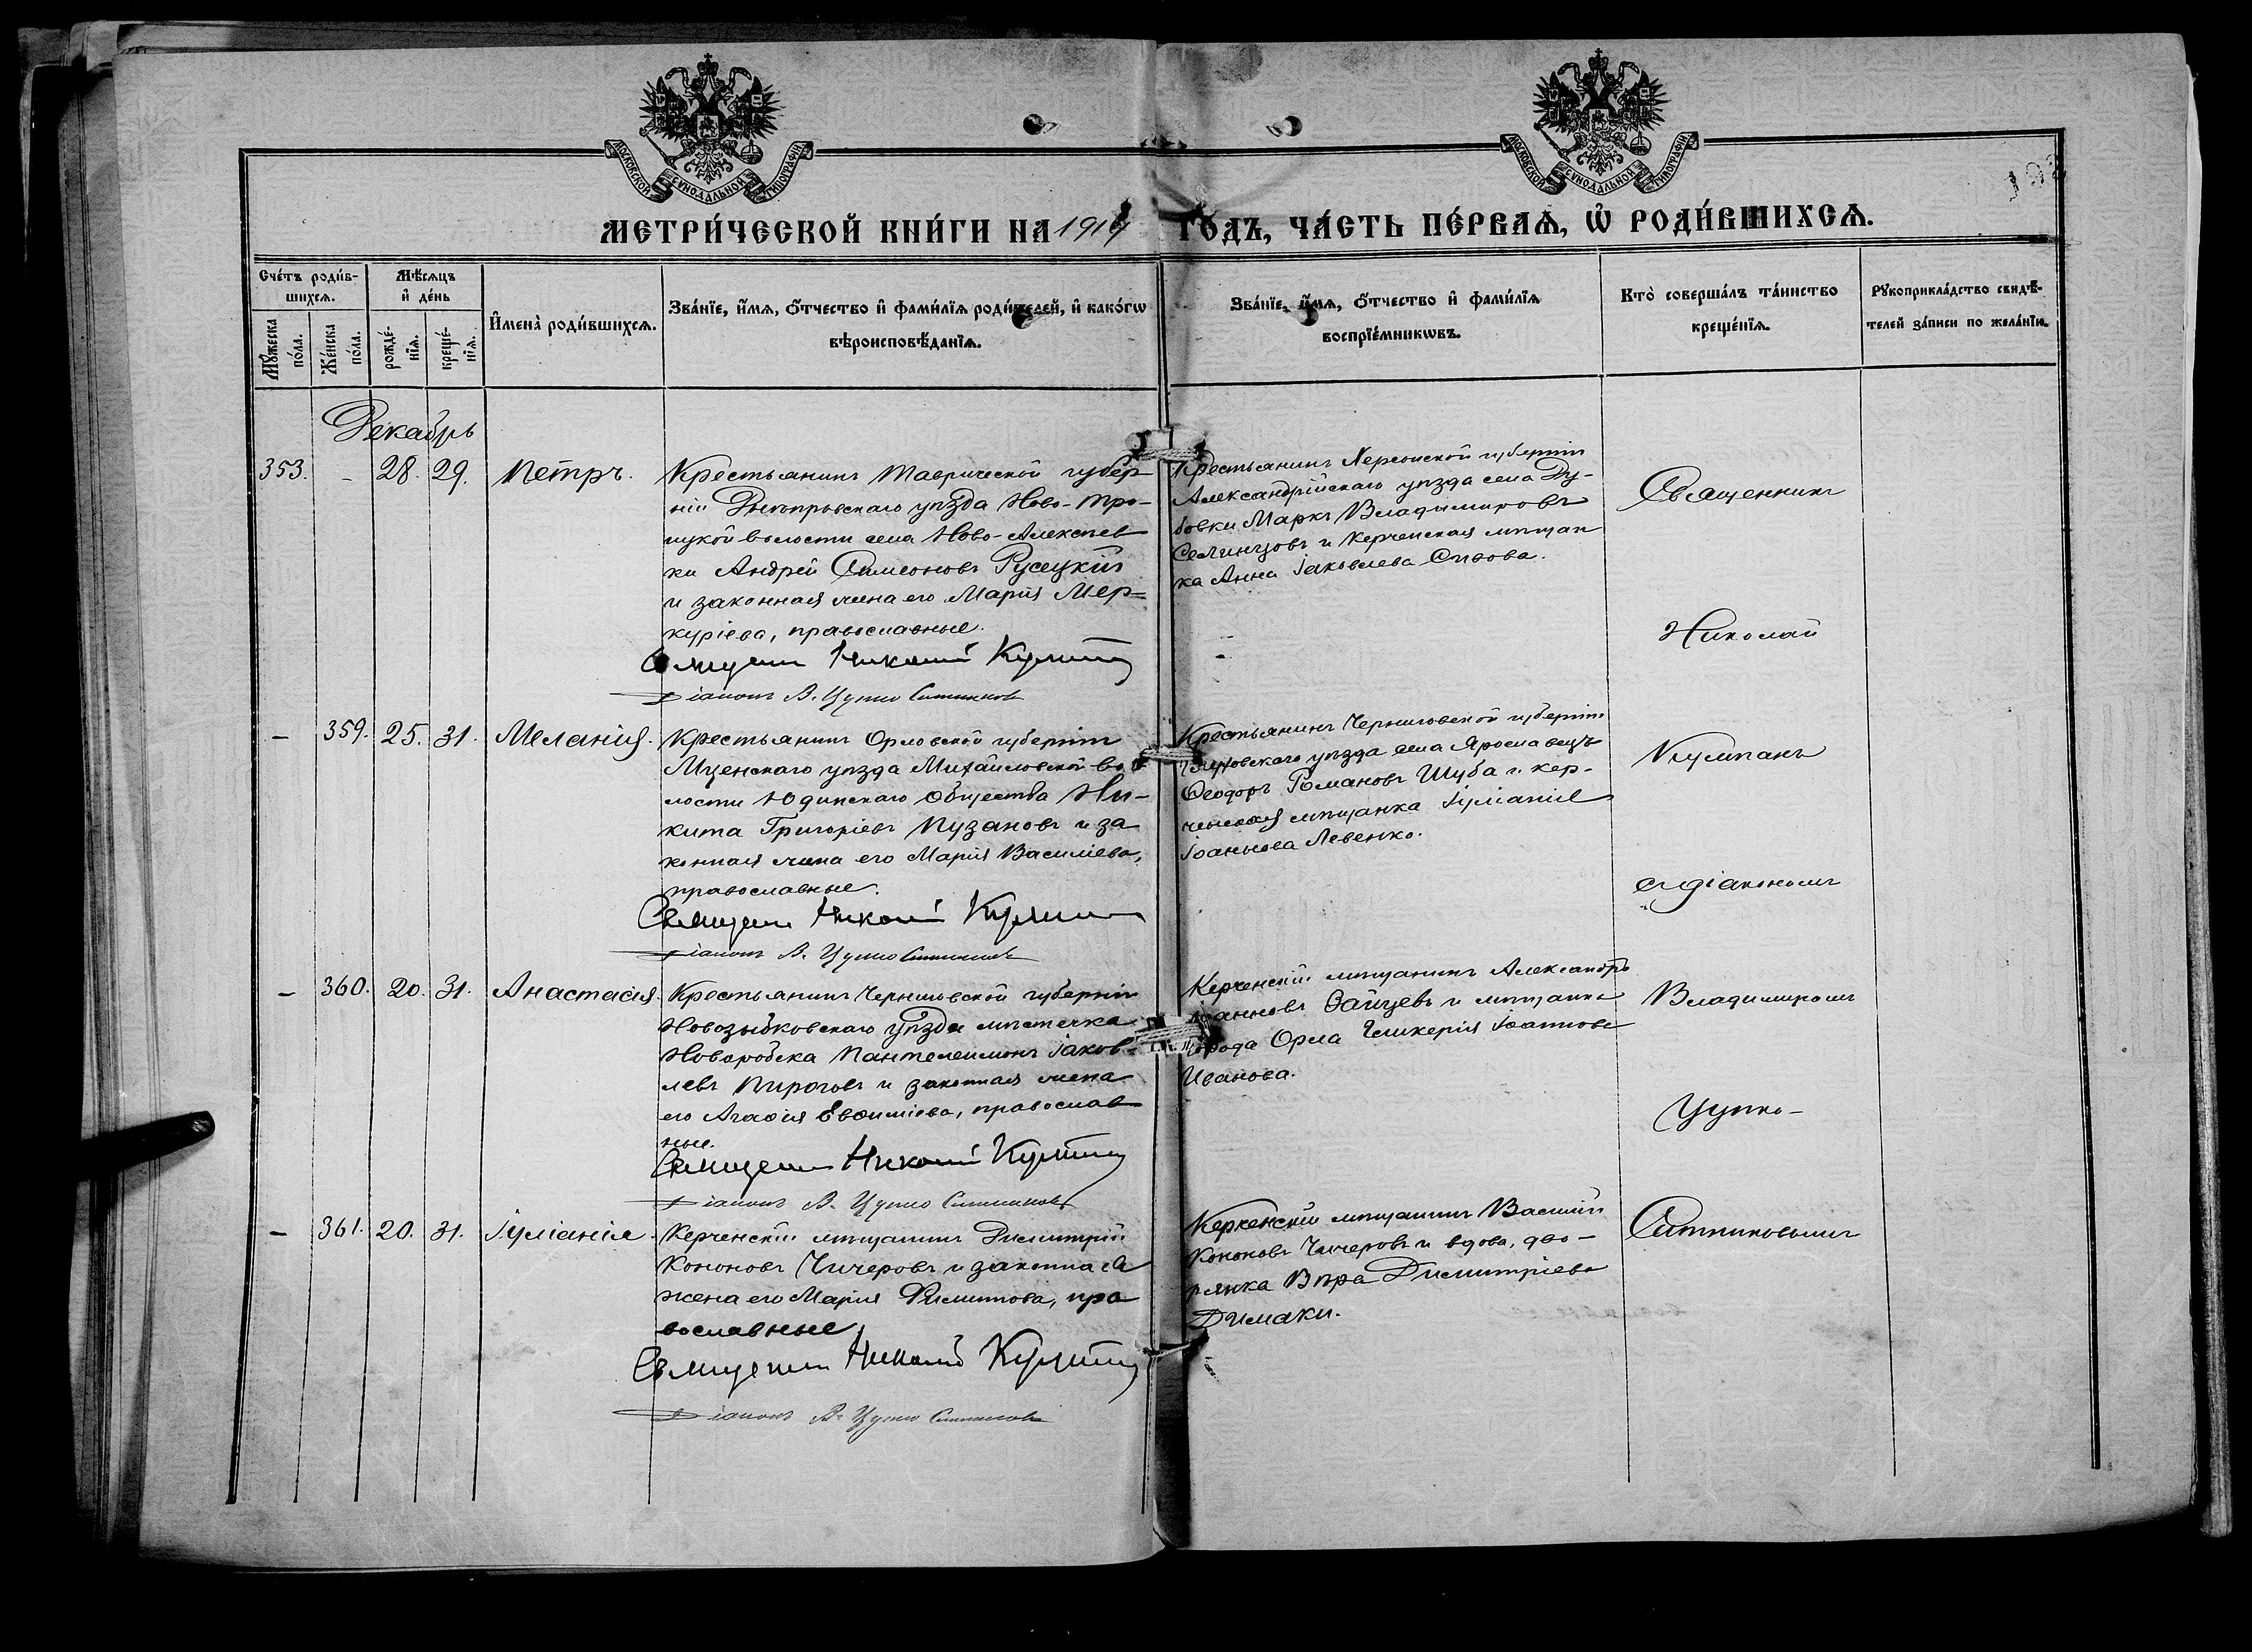 МОСКОВСКОЙ СѴНОДАЛЬНОЙ ТИПОГРАФІИ
МОСКОВСКОЙ СѴНОДАЛЬНОЙ ТИПОГРАФІИ
МЕТРИ́ЧЕСКОЙ КНИ́ГИ НА 1914 ГО́ДЪ, ЧА́СТЬ ПЕ́РВАѦ, Ѡ҆ РОДИ́ВШИХСѦ.
Сче́тъ роди́в-
шихсѧ.
Мꙋ́жеска
по́ла.
Же́нска
по́ла.
Мѣ́сѧцъ
и҆ де́нь
рожде́-
нїѧ.
креще́-
нїѧ.
И҆мена̀ роди́вшихсѧ.
Зва́нїе, и҆́мѧ, ѻ҆́тчество и҆ фами́лїѧ роди́телей, и҆ како́гѡ
вѣроисповѣ́данїѧ.
Зва́нїе, и҆́мѧ, ѻ҆́тчество и҆ фами́лїѧ
воспрїе́мникѡвъ.
Кто̀ соверша́лъ та́инство
креще́нїѧ.
Рꙋкоприкла́дство свидѣ́-
телей за́писи по жела́нїю.
Декабрь
353. - 28. 29. Петръ.
Крестьянинъ Таврической губер
ніи Днѣпровскаго уѣзда Ново-Тро-
ицкой волости села Ново-Алексѣев
ки Андрей Симеоновъ Русецкій
и законная жена его Марія Мер=
куріева, православные.
Священникъ Николай
Діаконъ В. Цупко Ситниковъ
Крестьянинъ Херсонской губерніи
Александрійскаго уѣзда села Ду-
бовки Маркъ Владимировъ
Селинцовъ и Керченская мѣщан
ка Анна Іаковлева Сивова.
– 359. 25. 31. Меланія.
Крестьянинъ Орловской губерніи
Мценскаго уѣзда Михайловской во
лости Юдинскаго общества Ни-
кита Григоріевъ Пузановъ и за
конная жена его Марія Василіева,
православные.
Священникъ Николай
Діаконъ В. Цупко Ситниковъ
Крестьянинъ Черниговской губерніи
Глуховскаго уѣзда села Ярославецъ
Ѳеодоръ Романовъ Шуба и кер-
ченская мѣщанка Іуліанія
Іоаннова Левенко.
– 360. 20. 31. Анастасія.
Крестьянинъ Черниговской губерніи
Новозыбковскаго уѣзда мѣстечка
Новоробска Пантелеимонъ Іаков-
левъ Пироговъ и законная жена
его Агаѳія Евѳиміева, православ
ные.
Священникъ Николай
Діаконъ В. Цупко Ситниковъ
Керченскій мѣщанинъ Александръ
Іоанновъ Зайцевъ и мѣщанка
города Орла Гликерія Іоаннова
Иванова.
– 361. 20. 31. Іуліанія.
Керченскій мѣщанинъ Димитрій
Кононовъ Чичеровъ и законная
жена его Марія Филиппова, пра
вославные.
Священникъ Николай
Діаконъ В. Цупко Ситниковъ
Керченскій мѣщанинъ Василій
Кононовъ Чичеровъ и вдова, дво-
рянка Вѣра Димитріева
Димаки.
Священникъ
Николай
съ діакономъ
Владимиромъ
Цупко-
Ситниковымъ